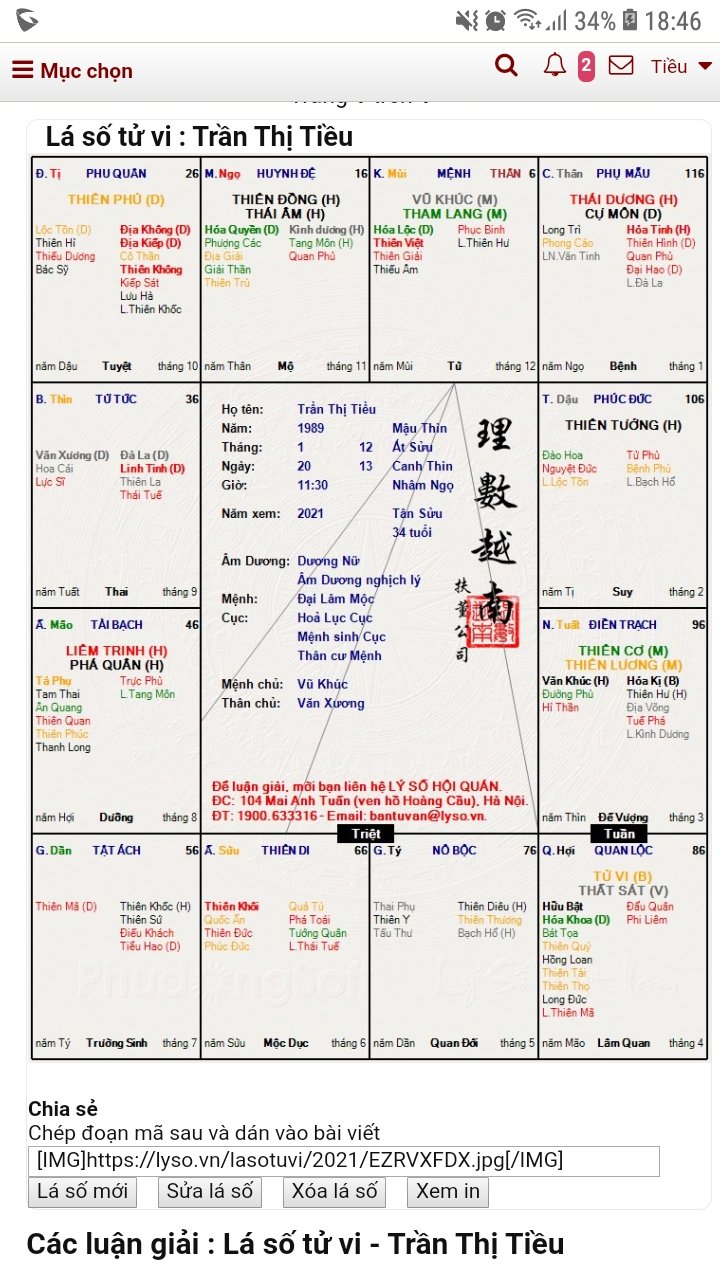 34% 18:46
Mục chọn 2 Tiều
Lá số tử vi : Trần Thị Tiều
Đ. Tị PHU QUÂN 26
THIÊN PHỦ (D)
Lộc Tồn (D) Địa Không (D)
Thiên Hỉ Địa Kiếp (D)
Thiếu Dương Cô Thần
Bác Sỹ Thiên Không
Kiếp Sát
Lưu Hà
L.Thiên Khốc
năm Dậu Tuyệt tháng 10
M. Ngọ HUYNH ĐỆ 16
THIÊN ĐỒNG (H)
THÁI ÂM (H)
Hóa Quyền (D) Kình dương (H)
Phượng Các Tang Môn (H)
Địa Giải Quan Phủ
Giải Thần
Thiên Trù
năm Thân Mộ tháng 11
K. Mùi MỆNH THÂN 6
VŨ KHÚC (M)
THAM LANG (M)
Hóa Lộc (D) Phục Binh
Thiên Việt L.Thiên Hư
Thiên Giải
Thiếu Âm
năm Mùi Tử tháng 12
C. Thân PHỤ MẪU 116
THÁI DƯƠNG (H)
CỰ MÔN (D)
Long Trì Hỏa Tinh (H)
Phong Cáo Thiên Hình (D)
LN.Văn Tinh Quan Phù
Đại Hao (D)
L.Đà La
năm Ngọ Bệnh tháng 1
B. Thìn TỬ TỨC 36
Văn Xương (D) Đà La (D)
Hoa Cái Linh Tinh (D)
Lực Sĩ Thiên La
Thái Tuế
năm Tuất Thai tháng 9
Họ tên: Trần Thị Tiều
Năm: 1989 Mậu Thìn
Tháng: 1 12 Ất Sửu
Ngày: 20 13 Canh Thìn
Giờ: 11:30 Nhâm Ngọ
Năm xem: 2021 Tân Sửu
34 tuổi
Âm Dương: Dương Nữ
Âm Dương nghịch lý
Mệnh: Đại Lâm Mộc
Cục: Hoả Lục Cục
Mệnh sinh Cục
Thân cư Mệnh
Mệnh chủ: Vũ Khúc
Thân chủ: Văn Xương
理數越南
扶董公司
Để luận giải, mời bạn liên hệ LÝ SỐ HỘI QUÁN.
ĐC: 104 Mai Anh Tuấn (ven hồ Hoàng Cầu), Hà Nội.
ĐT: 1900.633316 - Email: bantuvan@lyso.vn.
T. Dậu PHÚC ĐỨC 106
THIÊN TƯỚNG (H)
Đào Hoa Tử Phù
Nguyệt Đức Bệnh Phù
L.Lộc Tồn L.Bạch Hổ
năm Tị Suy tháng 2
Ấ. Mão TÀI BẠCH 46
LIÊM TRINH (H)
PHÁ QUÂN (H)
Tả Phụ Trực Phù
Tam Thai L.Tang Môn
Ân Quang
Thiên Quan
Thiên Phúc
Thanh Long
năm Hợi Dưỡng tháng 8
N. Tuất ĐIỀN TRẠCH 96
THIÊN CƠ (M)
THIÊN LƯƠNG (M)
Văn Khúc (H) Hóa Kị (B)
Đường Phù Thiên Hư (H)
Hỉ Thần Địa Võng
Tuế Phá
L.Kình Dương
năm Thìn Đế Vượng tháng 3
Triệt Tuần
G. Dần TẬT ÁCH 56
Thiên Mã (D) Thiên Khốc (H)
Thiên Sứ
Điếu Khách
Tiểu Hao (D)
năm Tý Trường Sinh tháng 7
Ấ. Sửu THIÊN DI 66
Thiên Khôi Quả Tú
Quốc Ấn Phá Toái
Thiên Đức Tướng Quân
Phúc Đức L.Thái Tuế
năm Sửu Mộc Dục tháng 6
G. Tý NÔ BỘC 76
Thai Phụ Thiên Diêu (H)
Thiên Y Thiên Thương
Tấu Thư Bạch Hổ (H)
năm Dần Quan Đới tháng 5
Q. Hợi QUAN LỘC 86
TỬ VI (B)
THẤT SÁT (V)
Hữu Bật Đẩu Quân
Hóa Khoa (D) Phi Liêm
Bát Tọa
Thiên Quý
Hồng Loan
Thiên Tài
Thiên Thọ
Long Đức
L.Thiên Mã
năm Mão Lâm Quan tháng 4
Chia sẻ
Chép đoạn mã sau và dán vào bài viết
[IMG]https://lyso.vn/lasotuvi/2021/EZRVXFDX.jpg[/IMG]
Lá số mới Sửa lá số Xóa lá số Xem in
Các luận giải : Lá số tử vi - Trần Thị Tiều